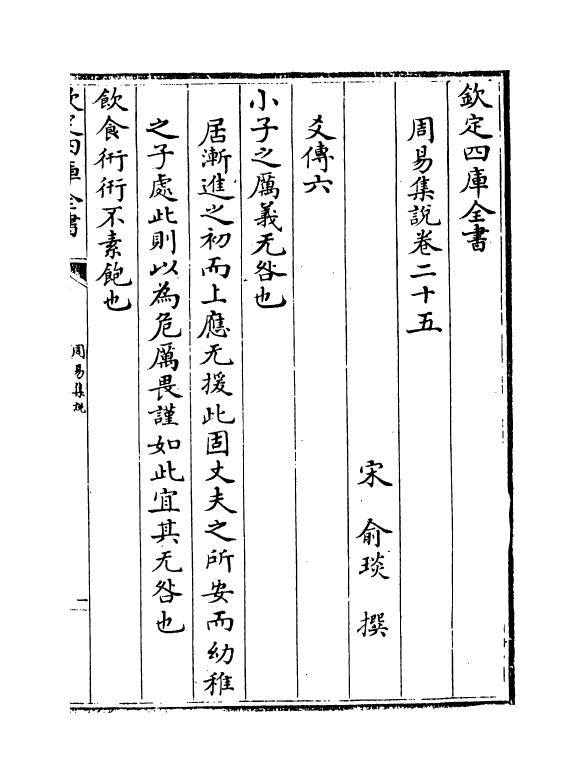 欽定四庫全書
周易集說卷二十五
宋 俞琰 撰
爻傳六
小子之厲義无咎也
居漸進之初而上應无援此固丈夫之所安而幼稚
之子處此則以為危厲畏謹如此宜其无咎也
飲食衎衎不素飽也
欽定四庫全書
周易集說
一